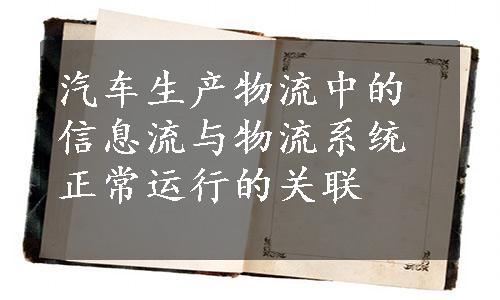 汽车生产物流中的
信息流与物流系统
正常运行的关联